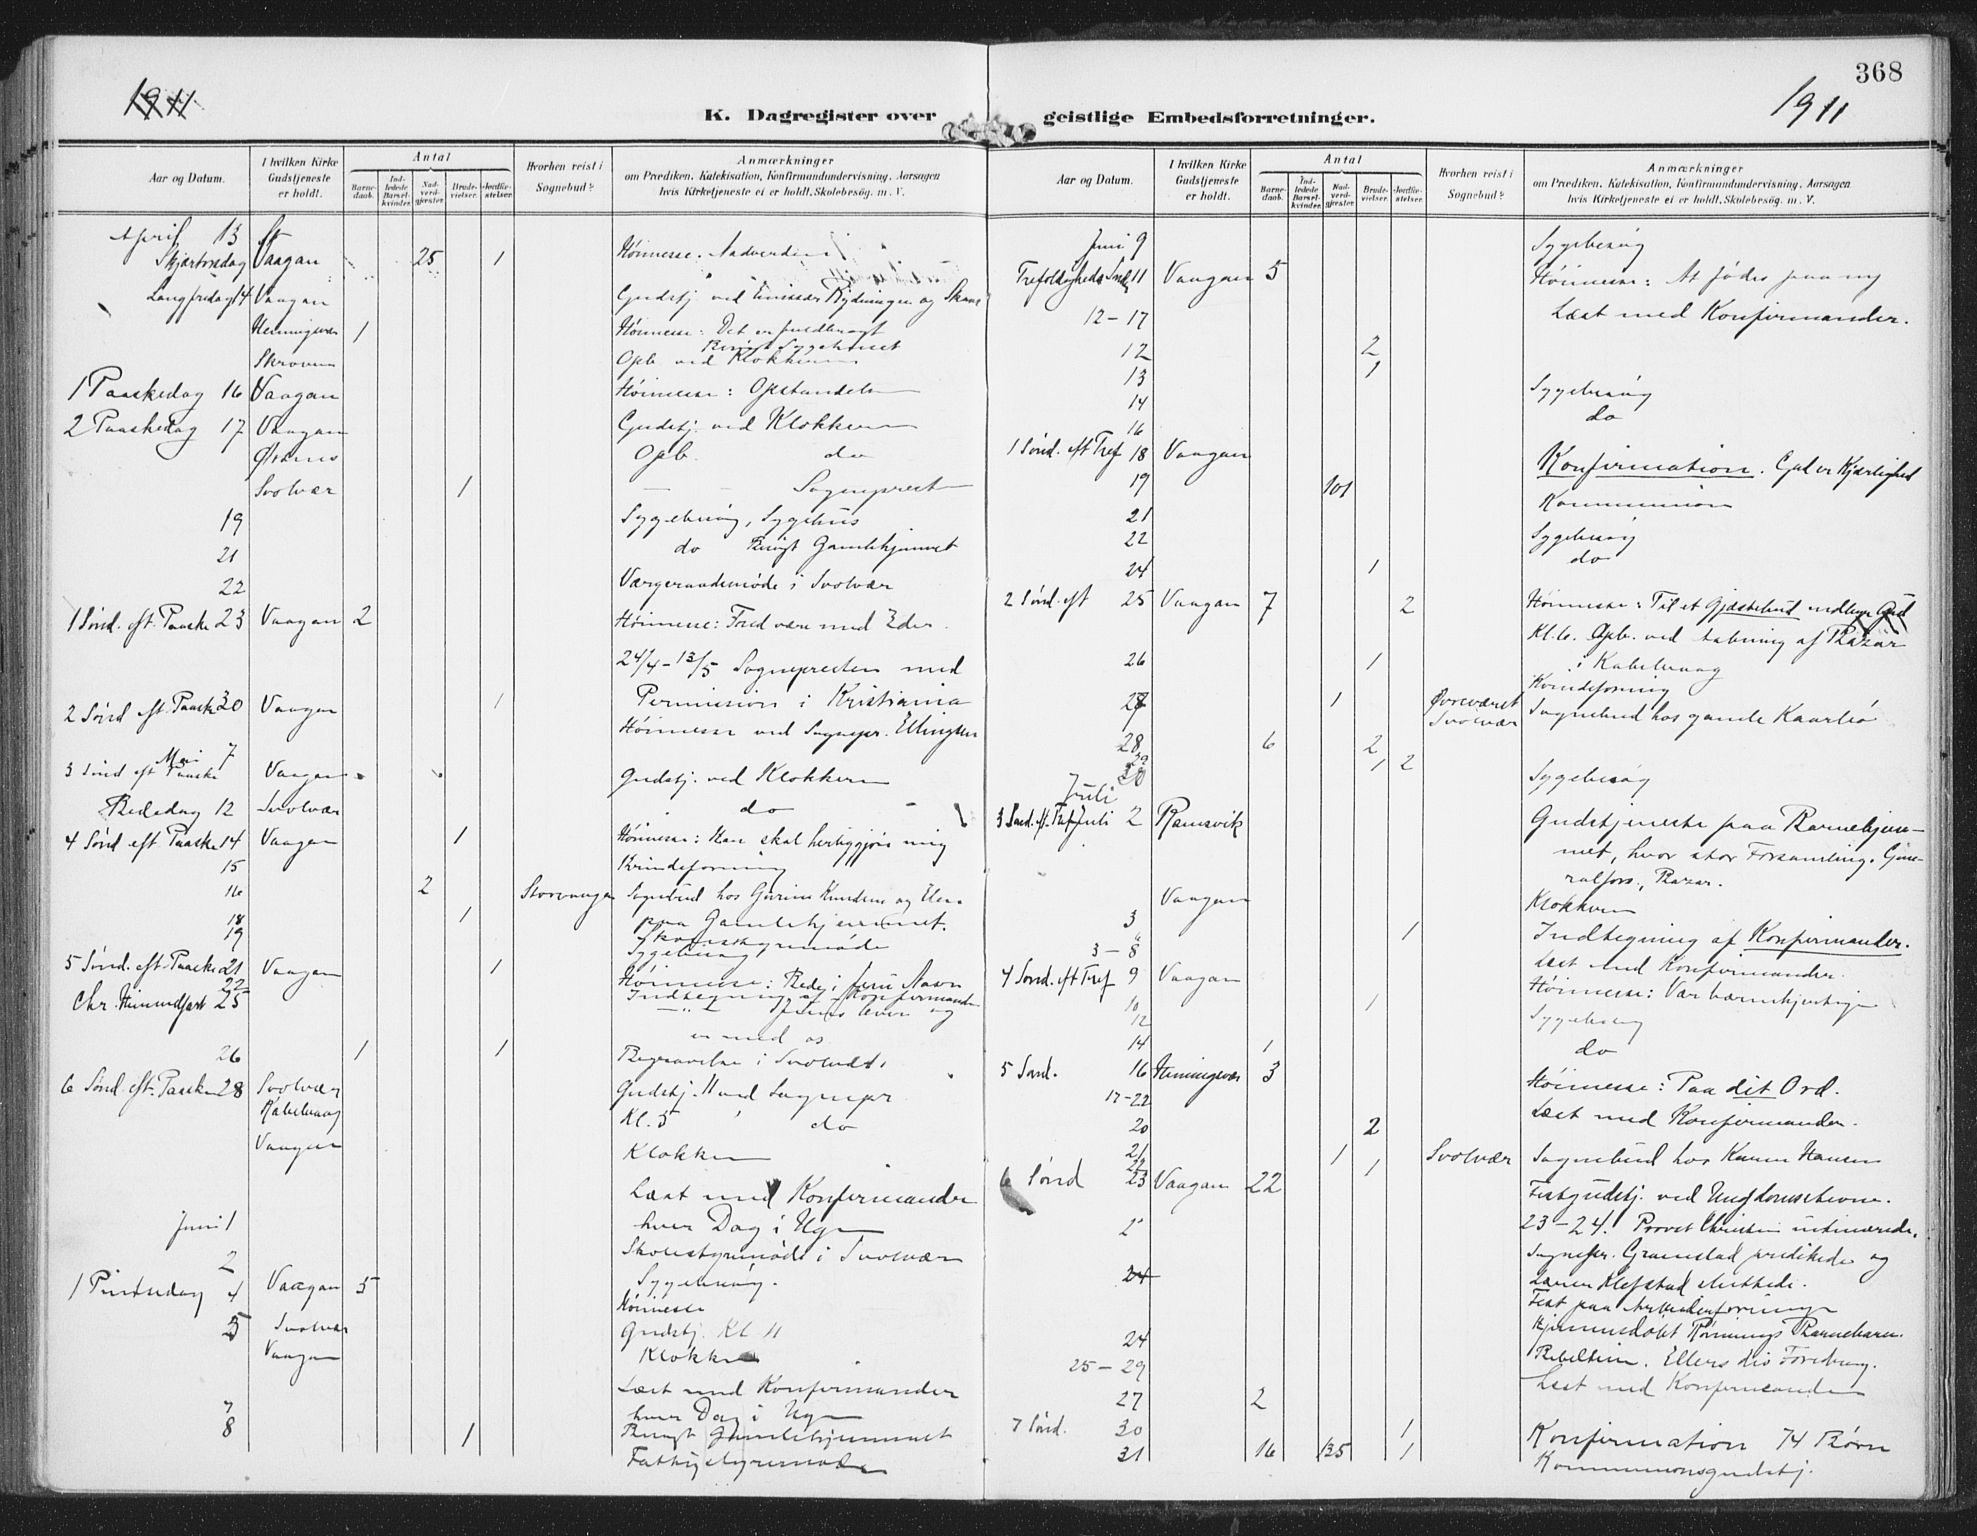 368
1911
1911
K. Dagregister over geistlige Embedsforretninger.
Aar og Datum.
I hvilken Kirke Gudstjeneste er holdt.
Antal
Barnedaab.
Indledede Barselkvinder.
Nadverdgjester
Brudevielser.
Jordfæstelser.
Hvorhen reist i Sognebud?
Anmærkninger
om Prædiken, Katekisation, Konfirmandundervisning, Aarsagen
hvis Kirketjeneste ei er holdt, Skolebesög. m. V.
April 13
Skjærtorsdag Vaagan 25 1 Höimesse. Nadverden
Langfredag 14 Vaagan Gudstj. ved Emissær Rydningen og
Henningsvær 1 Höimesse: Det er fuldbragt
Besögt Sygehuset
Skroven Opb. ved Klokkeren
1 Paaskedag 16 Vaagan Höimesse: Opstandelse
2 Paaskedag 17 Vaagan Gudstj. ved Klokkeren
Opb. do
Svolvær 1 — — Sogneprest
19 Sygebesög, Sygehus
21 do Besögt Gamlehjemmet
22 Værgeraadsmöde i Svolvær
1 Sönd. eft. Paaske 23 Vaagan 2 Höimesse: Fred være med Eder.
24/4 – 13/5 Sognepresten med
2 Sönd eft. Paaske 30 Vaagan 1 Permission i Kristiania
Höimesse ved Sognepr. Ellingsen
Mai 7
3 Sönd eft Paaske Vaagan Gudstj. ved Klokkeren
Bededag 12 Svolvær do
4 Sönd eft Paaske 14 Vaagan 1 Höimesse: Han skal herliggjöre mig
15 Kvindeforening
16 2 Storvaagan Sognebud hos
18 1 paa Gamlehjemmet.
19 Skolestyremöde
Sygebesög
5 Sönd. eft. Paaske 21 Vaagan 1 Höimesse: Bede i Jesu Navn
22 Indtegning af Konfirmander
Chr. Himmelfart 25 Jesus lever og
er med os
26 1 1 Begravelse i Svolvær.
6 Sönd. eft. Paaske 28 Svolvær Gudstj. 11 ved Sognepr
Kabelvaag Kl. 5 do
Vaagan Klokker
Læst med Konfirmander
Juni 1 hver Dag i Ugen
2 Skolestyremöde i Svolvær
Sygebesög.
1 Pintsedag 4 Vaagan 5 Höimesse
5 Svolvær Gudstj. Kl 11
Vaagan Klokker
Læst med Konfirmander
7 hver Dag i Ugen
8 1 Besögt Gamlehjemmet
Fattigstyremöde
Aar og Datum.
I hvilken Kirke Gudstjeneste er holdt.
Antal
Barnedaab.
Indledede Barselkvinder.
Nadverdgjester
Brudevielser.
Jordfæstelser.
Hvorhen reist i Sognebud?
Anmærkninger
om Prædiken, Katekisation, Konfirmandundervisning, Aarsagen
hvis Kirketjeneste ei er holdt, Skolebesög. m. V.
Juni 9 Sygebesög
Trefoldigheds Sönd. 11 Vaagan 5 Höimesse: At födes paa ny
12–17 Læst med Konfirmander.
12 2
13 1 Sygebesög
14 do
16
1 Sönd. eft Tref 18 Vaagan Konfirmation. Gud er Kjærlighed
19 101 Kommunion
21 Sygebesög
22 do
24 1
2 Sönd. eft 25 Vaagan 7 2 Höimesse: Til et Gjæstebud
Kl. 6. Opb. ved aabning af Bazar
26 1 i Kabelvaag
Kvindeforening
27 1 Svolvær Sognebud hos gamle
28 6 2
29 1 2
30 Sygebesög
Juli
3 Sönd. eft. Tref Juli 2 Ramsvik Gudstjeneste paa Barnehjem-
met, hvor stor Forsamling. Gene-
ralfors., Bazar.
Vaagan Klokkeren
3 1 Indtegning af Konfirmander.
3–8 Læst med Konfirmander.
4 Sönd. eft Tref 9 Vaagan Höimesse: Vær barmhjertige
10 1 Sygebesög
12 do
14 1
5 Sönd. 16 Henningsvær 3 Höimesse: Paa dit Ord.
17–22 Læst med Konfirmander.
20 2
21 1 Svolvær Sognebud hos Karen Hansen
22 1
6 Sönd 23 Vaagan 22 Festgudstj. ved Ungdomsstevne.
23–24. Provst
Sognepr. Gramstad prædikede og
24
24
25–29 Læst med Konfirmander
27 2
7 Sönd. 30 1 Konfirmation 74 Börn
31 16 135 1 Kommunionsgudstj.